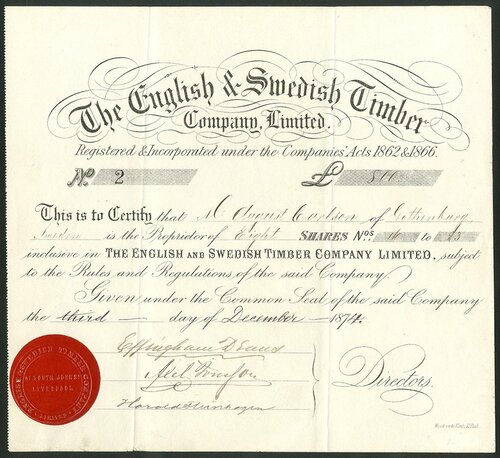 The English & Swedish Timber
Company, Limited.
Registered & Incorporated under the Companies' Acts 1862 & 1866.
No. 2 £ 800
This is to Certify that Mr August Carlson of Gottenburg
Sweden is the Proprietor of Eight SHARES Nos. to
inclusive in THE ENGLISH AND SWEDISH TIMBER COMPANY LIMITED, subject
to the Rules and Regulations of the said Company.
Given under the Common Seal of the said Company
the third day of December 1874.
Effingham
Axel
Directors.
Harold
LIVERPOOL